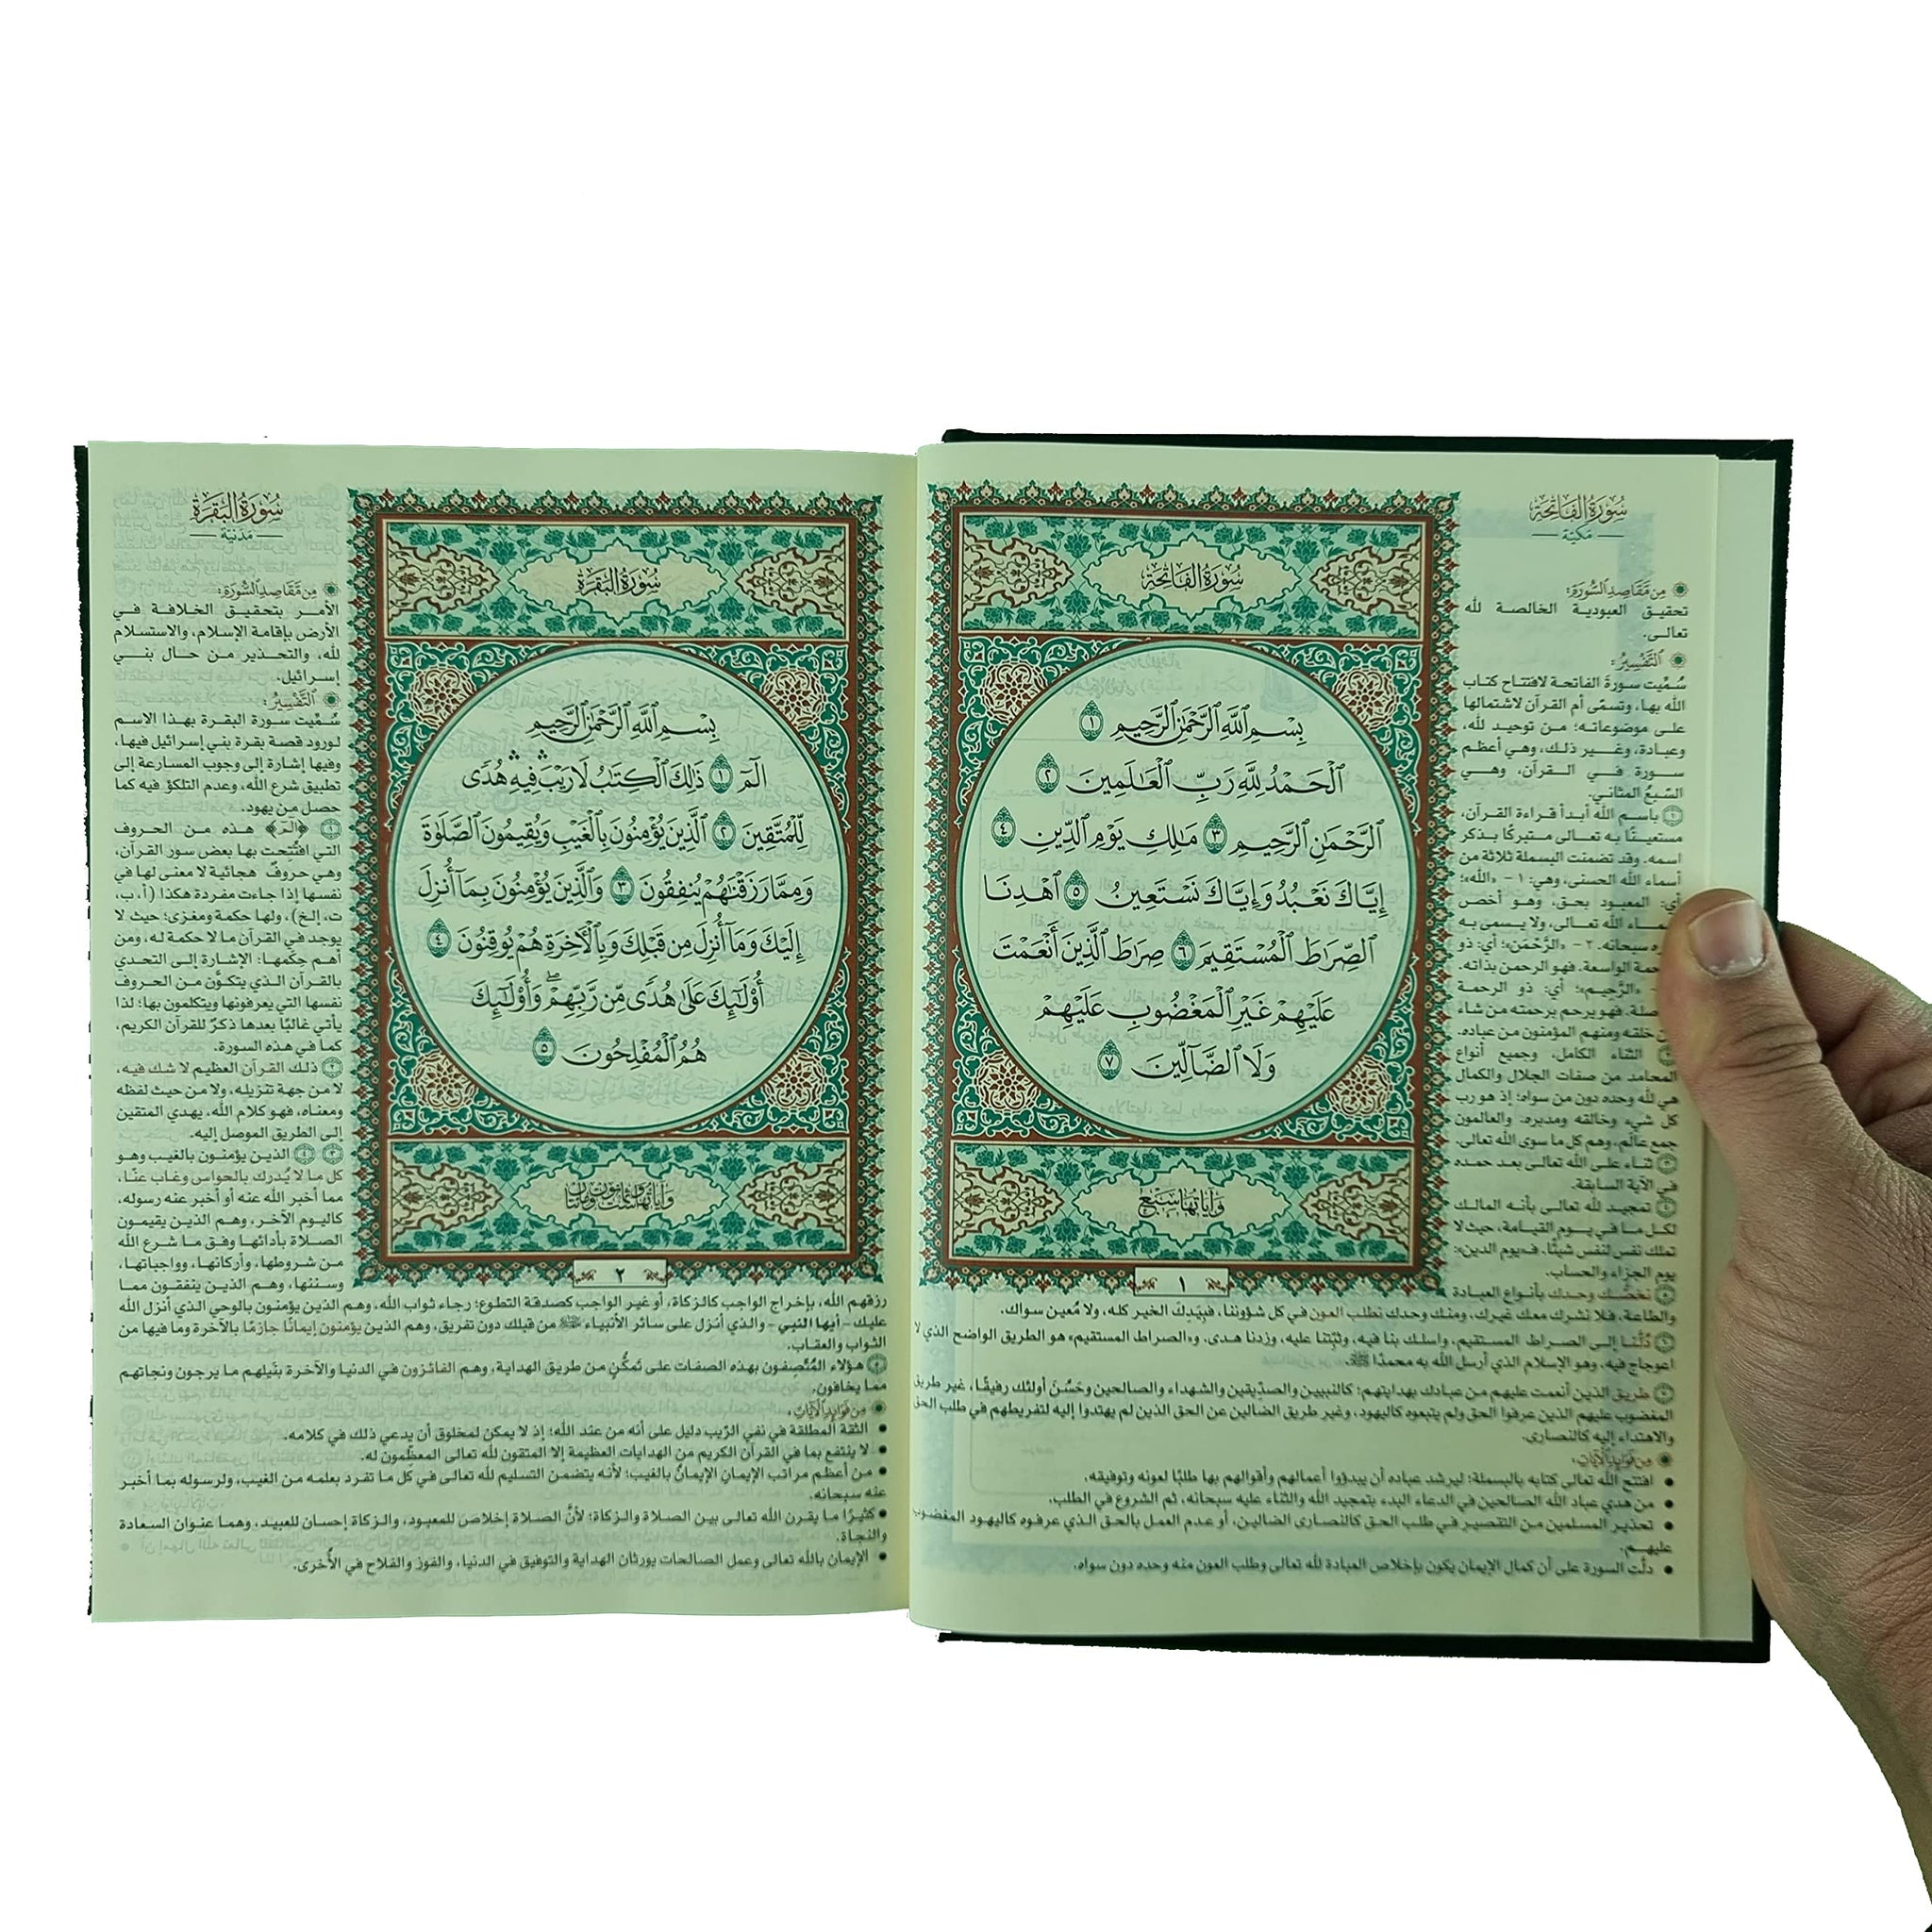 سُورَةُ الْفَاتِحَةِ
مَكِّيَّة
مِن مَّقَاصِدِ ٱلسُّورَةِ:
تحقيق العبودية الخالصة لله
تعالى.
التَّفْسِيرُ:
سُمِّيت سورة الفاتحة لافتتاح كتاب
الله بها، وتسمّى أم القرآن لاشتمالها
على موضوعاته؛ من توحيد لله،
وعبادة، وغير ذلك، وهي أعظم
سورة في القرآن، وهي
السّبعُ المثاني.
١ باسم الله أبدأ قراءة القرآن،
مستعينًا به تعالى متبركًا بذكر
اسمه. وقد تضمنت البسملة ثلاثة من
أسماء الله الحسنى، وهي: ١- «الله»؛
أي: المعبود بحق، وهو أخص
الله تعالى، ولا يسمى به
سبحانه. ٢- «الرَّحْمَن»؛ أي: ذو
الواسعة. فهو الرحمن بذاته.
«الرَّحِيم»؛ أي: ذو الرحمة
فهو يرحم برحمته من شاء
خلقه ومنهم المؤمنون من عباده.
الثناء الكامل، وجميع أنواع
المحامد من صفات الجلال والكمال
هي لله وحده دون من سواه؛ إذ هو رب
كل شيء وخالقه ومدبره. والعالمون
جمع عالَم، وهم كل ما سوى الله تعالى.
٣ ثناء على الله تعالى بعد حمده
في الآية السابقة.
٤ تمجيد لله تعالى بأنه المالك
لكل ما في يوم القيامة، حيث لا
تملك نفس لنفس شيئًا. فـ«يوم الدين»:
يوم الجزاء والحساب.
٥ نخصُّك وحدك بأنواع العبادة
والطاعة، فلا نشرك معك غيرك، ومنك وحدك نطلب العون في كل شؤوننا، فبيدِكَ الخير كله، ولا مُعين سواك.
٦ دُلَّنا إلى الصراط المستقيم، واسلك بنا فيه، وثبِّتنا عليه، وزدنا هدى. و«الصراط المستقيم» هو الطريق الواضح الذي لا
اعوجاج فيه، وهو الإسلام الذي أرسل الله به محمدًا ﷺ.
٧ طريق الذين أنعمت عليهم من عبادك بهدايتهم؛ كالنبيين والصدِّيقين والشهداء والصالحين وحَسُنَ أولئك رفيقًا، غير طريق
المغضوب عليهم الذين عرفوا الحق ولم يتبعوه كاليهود، وغير طريق الضالين عن الحق الذين لم يهتدوا إليه لتفريطهم في طلب الحق
والاهتداء إليه كالنصارى.
مِن فَوَائِدِ ٱلْآيَاتِ:
• افتتح الله تعالى كتابه بالبسملة؛ ليرشد عباده أن يبدؤوا أعمالهم وأقوالهم بها طلبًا لعونه وتوفيقه.
• من هدي عباد الله الصالحين في الدعاء البدء بتمجيد الله والثناء عليه سبحانه، ثم الشروع في الطلب.
• تحذير المسلمين من التقصير في طلب الحق كالنصارى الضالين، أو عدم العمل بالحق الذي عرفوه كاليهود المغضوب
عليهم.
• دلَّت السورة على أن كمال الإيمان يكون بإخلاص العبادة لله تعالى وطلب العون منه وحده دون سواه.
سُورَةُ الْفَاتِحَةِ
بِسْمِ ٱللَّهِ ٱلرَّحْمَٰنِ ٱلرَّحِيمِ ١
ٱلْحَمْدُ لِلَّهِ رَبِّ ٱلْعَٰلَمِينَ ٢
ٱلرَّحْمَٰنِ ٱلرَّحِيمِ ٣ مَٰلِكِ يَوْمِ ٱلدِّينِ ٤
إِيَّاكَ نَعْبُدُ وَإِيَّاكَ نَسْتَعِينُ ٥ ٱهْدِنَا
ٱلصِّرَٰطَ ٱلْمُسْتَقِيمَ ٦ صِرَٰطَ ٱلَّذِينَ أَنْعَمْتَ
عَلَيْهِمْ غَيْرِ ٱلْمَغْضُوبِ عَلَيْهِمْ
وَلَا ٱلضَّآلِّينَ ٧
وَآيَاتُهَا سَبْعٌ
١
سُورَةُ الْبَقَرَةِ
بِسْمِ ٱللَّهِ ٱلرَّحْمَٰنِ ٱلرَّحِيمِ
الٓمٓ ١ ذَٰلِكَ ٱلْكِتَٰبُ لَا رَيْبَ ۛ فِيهِ ۛ هُدًى
لِّلْمُتَّقِينَ ٢ ٱلَّذِينَ يُؤْمِنُونَ بِٱلْغَيْبِ وَيُقِيمُونَ ٱلصَّلَوٰةَ
وَمِمَّا رَزَقْنَٰهُمْ يُنفِقُونَ ٣ وَٱلَّذِينَ يُؤْمِنُونَ بِمَآ أُنزِلَ
إِلَيْكَ وَمَآ أُنزِلَ مِن قَبْلِكَ وَبِٱلْأَخِرَةِ هُمْ يُوقِنُونَ ٤
أُوْلَٰٓئِكَ عَلَىٰ هُدًى مِّن رَّبِّهِمْ ۖ وَأُوْلَٰٓئِكَ
هُمُ ٱلْمُفْلِحُونَ ٥
وَآيَاتُهَا سِتٌّ وَثَمَانُونَ وَمِائَتَانِ
٢
سُورَةُ الْبَقَرَةِ
مَدَنِيَّة
مِن مَّقَاصِدِ ٱلسُّورَةِ:
الأمر بتحقيق الخلافة في
الأرض بإقامة الإسلام، والاستسلام
لله، والتحذير من حال بني
إسرائيل.
التَّفْسِيرُ:
سُمِّيت سورة البقرة بهذا الاسم
لورود قصة بقرة بني إسرائيل فيها،
وفيها إشارة إلى وجوب المسارعة إلى
تطبيق شرع الله، وعدم التلكؤ فيه كما
حصل من يهود.
١ ﴿الٓمٓ﴾ هذه من الحروف
التي افتُتحت بها بعض سور القرآن،
وهي حروفٌ هجائية لا معنى لها في
نفسها إذا جاءت مفردة هكذا (أ، ب،
ت، إلخ)، ولها حكمة ومغزى؛ حيث لا
يوجد في القرآن ما لا حكمة له، ومن
أهم حِكَمها: الإشارة إلى التحدي
بالقرآن الذي يتكوَّن من الحروف
نفسها التي يعرفونها ويتكلمون بها؛ لذا
يأتي غالبًا بعدها ذكرٌ للقرآن الكريم،
كما في هذه السورة.
٢ ذلك القرآن العظيم لا شك فيه،
لا من جهة تنزيله، ولا من حيث لفظه
ومعناه، فهو كلام الله، يهدي المتقين
إلى الطريق الموصل إليه.
٣ ٤ الذين يؤمنون بالغيب وهو
كل ما لا يُدرك بالحواس وغاب عنّا،
مما أخبر الله عنه أو أخبر عنه رسوله،
كاليوم الآخر، وهم الذين يقيمون
الصلاة بأدائها وفق ما شرع الله
من شروطها، وأركانها، وواجباتها،
وسننها، وهم الذين ينفقون مما
رزقهم الله، بإخراج الواجب كالزكاة، أو غير الواجب كصدقة التطوع؛ رجاء ثواب الله، وهم الذين يؤمنون بالوحي الذي أنزل الله
عليك - أيها النبي - والذي أنزل على سائر الأنبياء ﷺ من قبلك دون تفريق، وهم الذين يؤمنون إيمانًا جازمًا بالآخرة وما فيها من
الثواب والعقاب.
هؤلاء المُتَّصِفون بهذه الصفات على تَمكُّنٍ من طريق الهداية، وهم الفائزون في الدنيا والآخرة بنَيلهم ما يرجون ونجاتهم
مما يخافون.
مِن فَوَائِدِ ٱلْآيَاتِ:
• الثقة المطلقة في نفي الرّيب دليل على أنه من عند الله؛ إذ لا يمكن لمخلوق أن يدعي ذلك في كلامه.
• لا ينتفع بما في القرآن الكريم من الهدايات العظيمة إلا المتقون لله تعالى المعظِّمون له.
• من أعظم مراتب الإيمانِ الإيمانُ بالغيب؛ لأنه يتضمن التسليم لله تعالى في كل ما تفرد بعلمه من الغيب، ولرسوله بما أخبر
عنه سبحانه.
• كثيرًا ما يقرن الله تعالى بين الصلاة والزكاة؛ لأنَّ الصلاة إخلاص للمعبود، والزكاة إحسان للعبيد، وهما عنوان السعادة
والنجاة.
• الإيمان بالله تعالى وعمل الصالحات يورثان الهداية والتوفيق في الدنيا، والفوز والفلاح في الأُخرى.